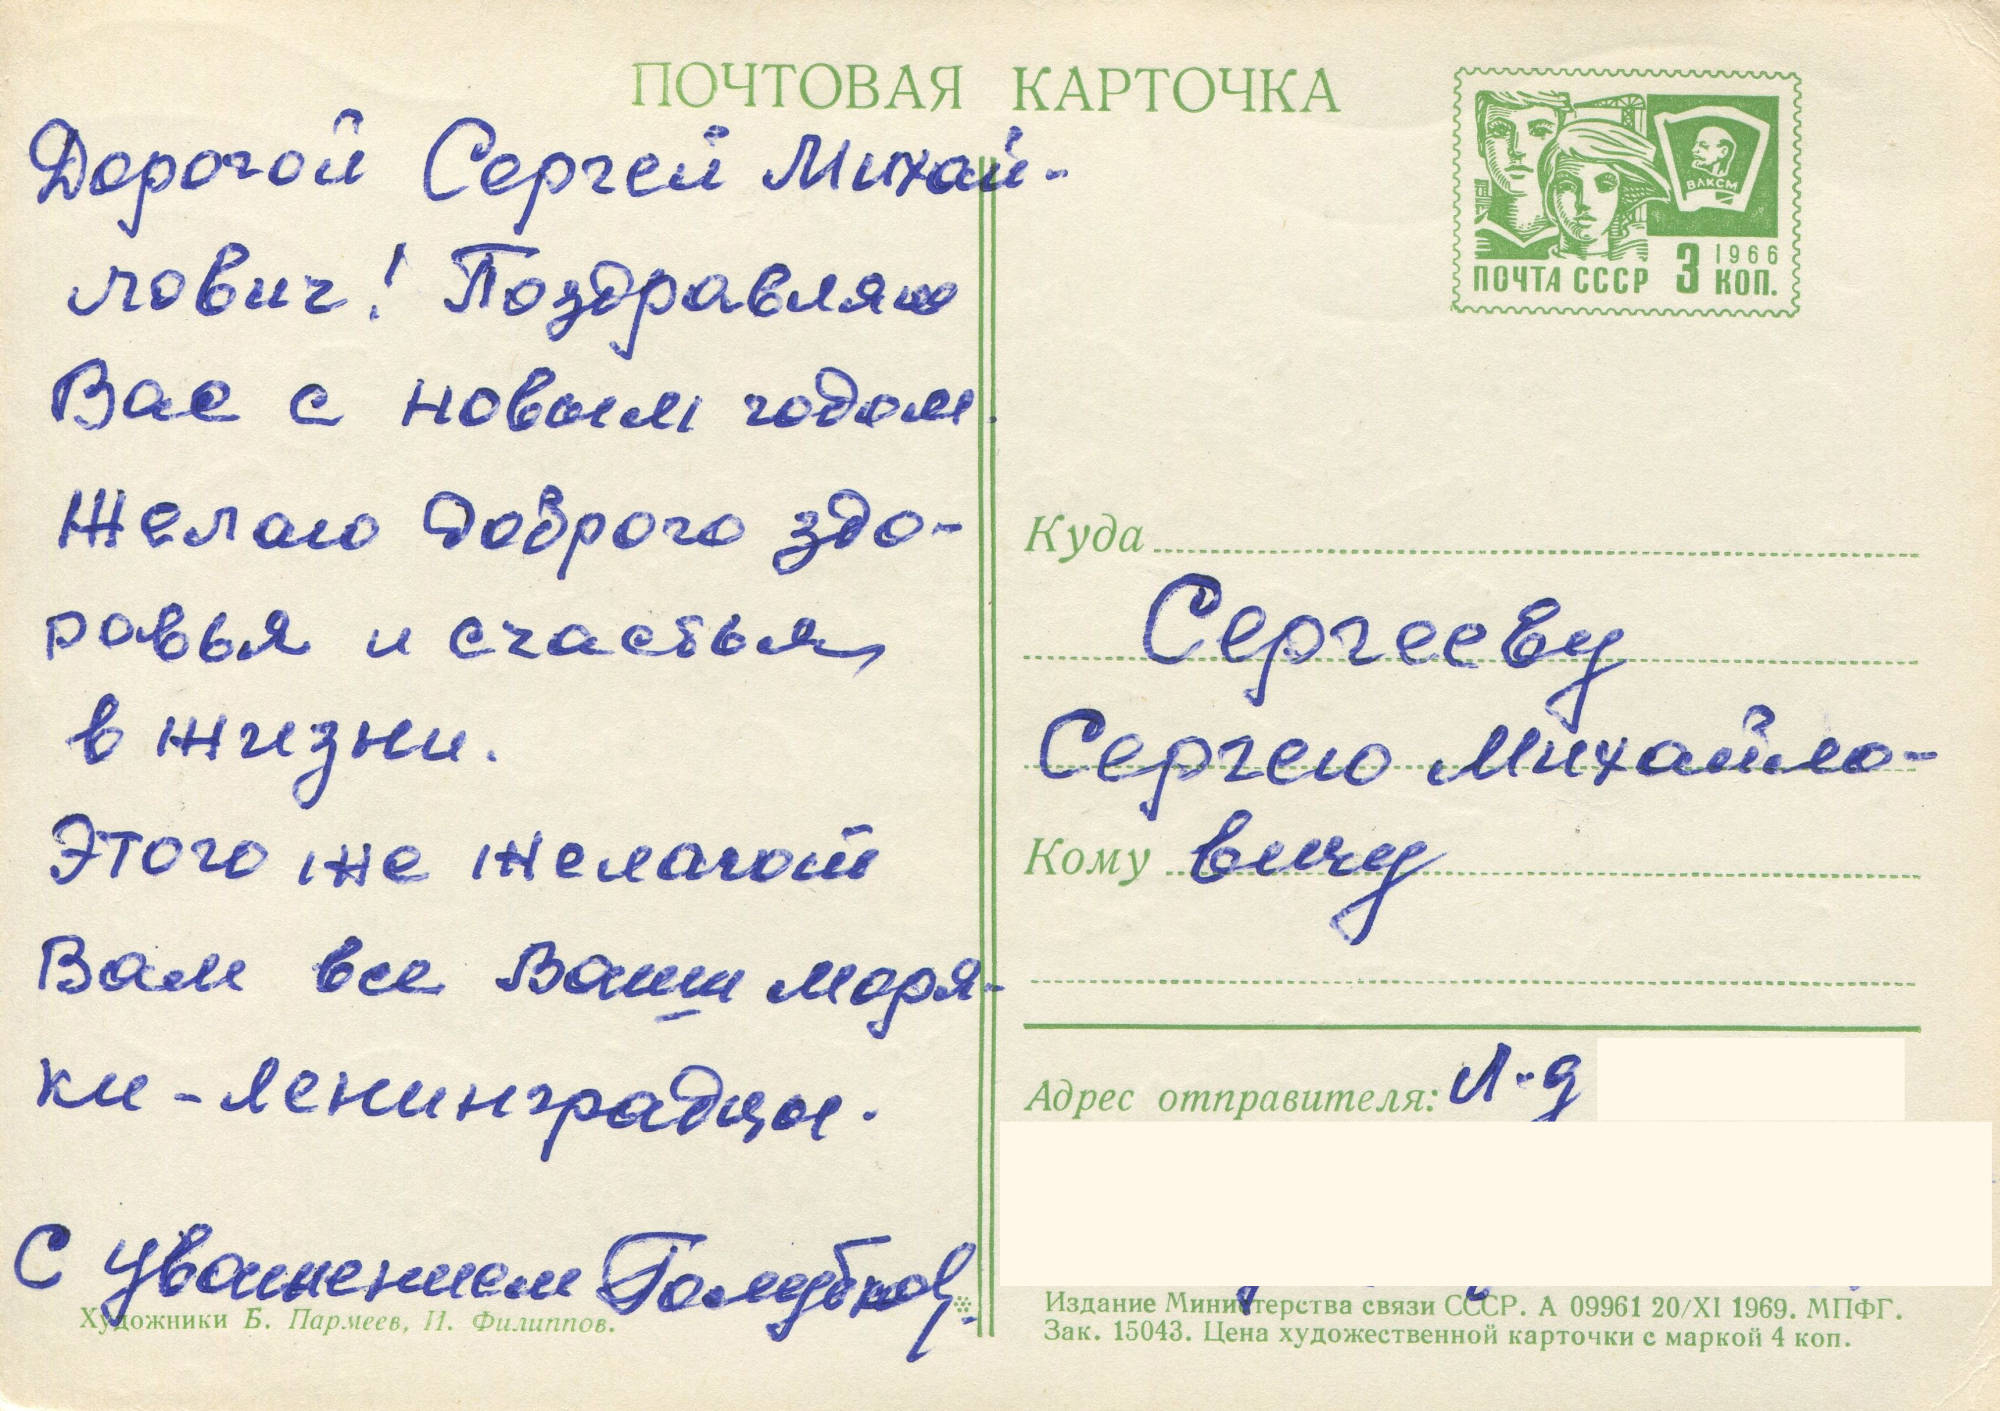 ПОЧТОВАЯ КАРТОЧКА
Дорогой Сергей Михай-
лович! Поздравляю
Вас с новым годом.
Желаю доброго здо-
ровья и счастья
в жизни.
Этого же желают
Вам все Ваши моря-
ки - ленинградцы.
С уважением Голубков.
Художники Б. Пармеев, И. Филиппов.
ВЛКСМ
1966
ПОЧТА СССР 3 КОП.
Куда
Сергееву
Сергею Михайло-
Кому вичу
Адрес отправителя: Л-д
Издание Министерства связи СССР. А 09961 20/XI 1969. МПФГ.
Зак. 15043. Цена художественной карточки с маркой 4 коп.